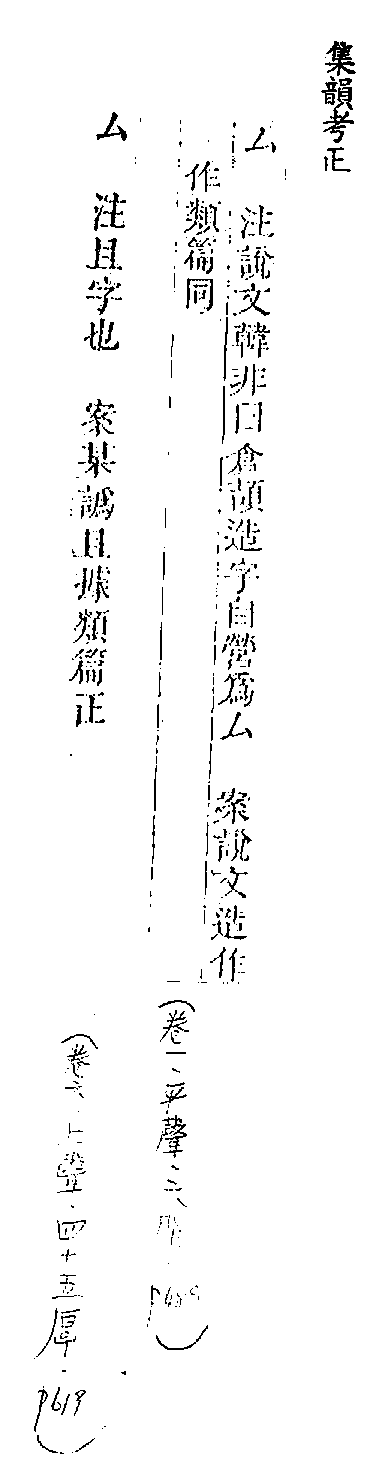 集韻考正
厶　注說文韓非曰倉頡造字自營爲厶　案說文造作
作類篇同
（卷一、平聲、六脂、
厶　注且字也　案某譌且據類篇正
（卷六、上聲、四十五厚、p619）